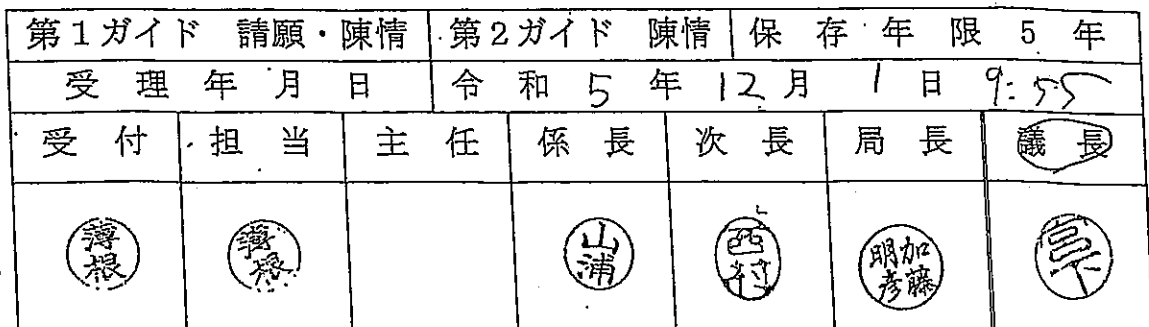 第1ガイド 請願・陳情 第2ガイド 陳情 保存年限 5年
受理年月日 令和5年12月1日 9:55
受付 担当 主任 係長 次長 局長 議長
薄根 薄根 山浦 西村 加藤明彦 宮下